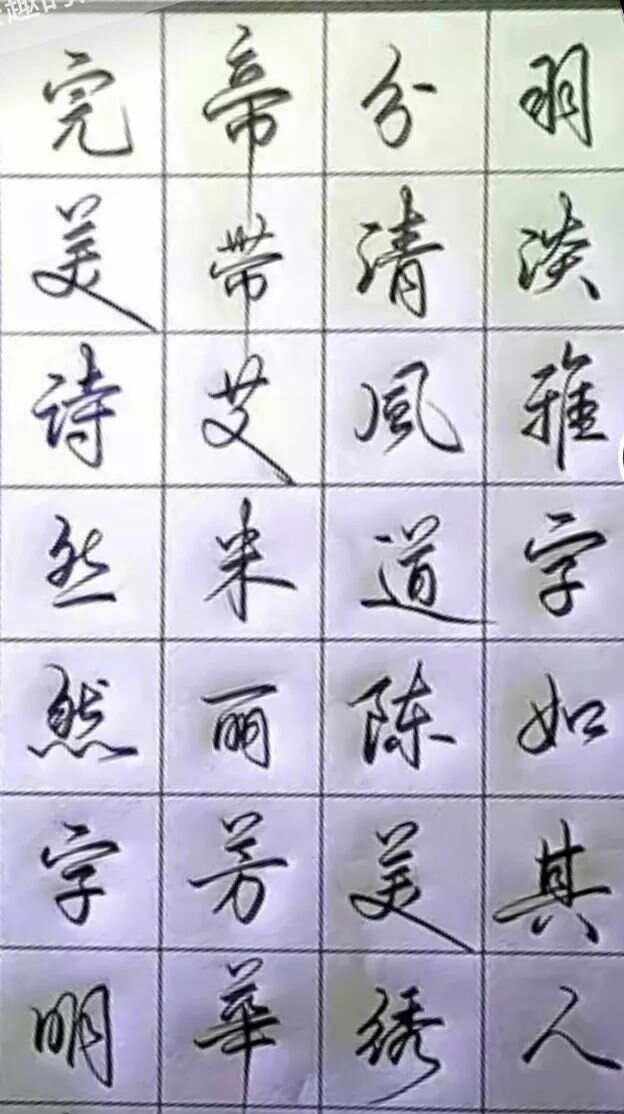 羽淡雅字如其人
分清風道陈美绣
帝带艾米丽芳華
完美诗然然字明